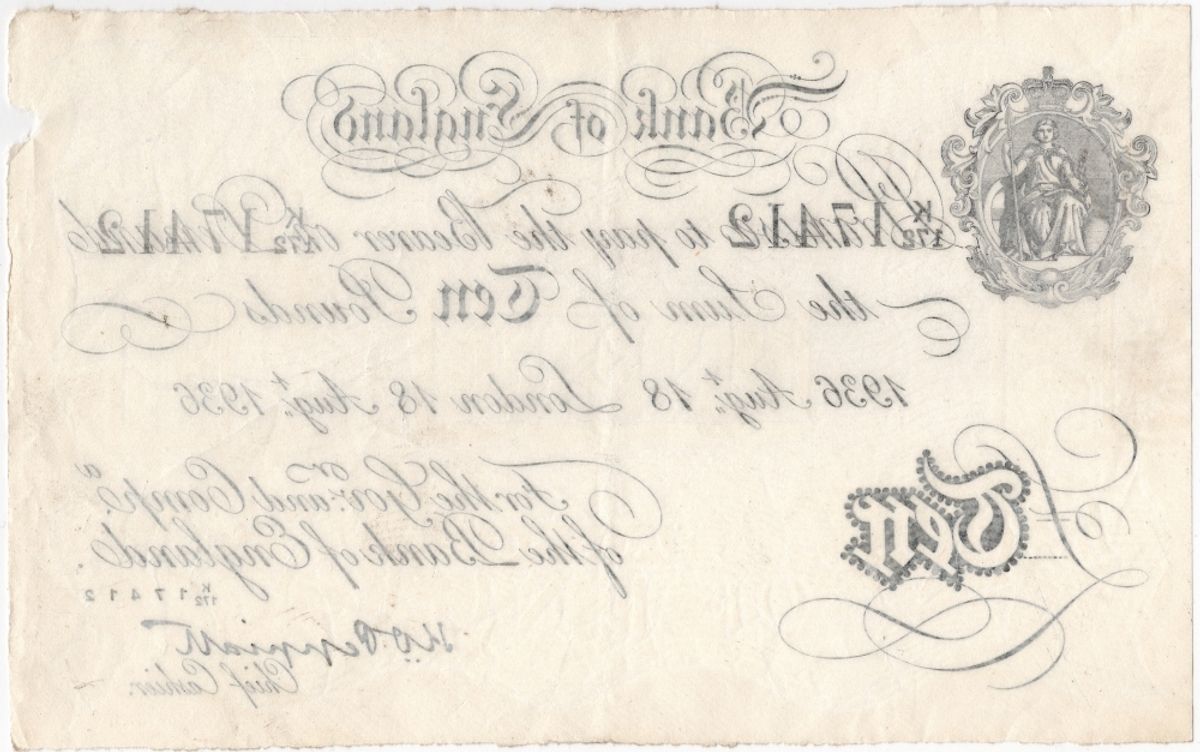 Bank of England
K/172 17412 to pay the Bearer on K/172 17412
the Sum of Ten Pounds
1936 Augt. 18 London 18 Augt. 1936
For the Govr. and Compa.
of the Bank of England.
£ Ten
K/172 17412
K.O. Peppiatt
Chief Cashier.